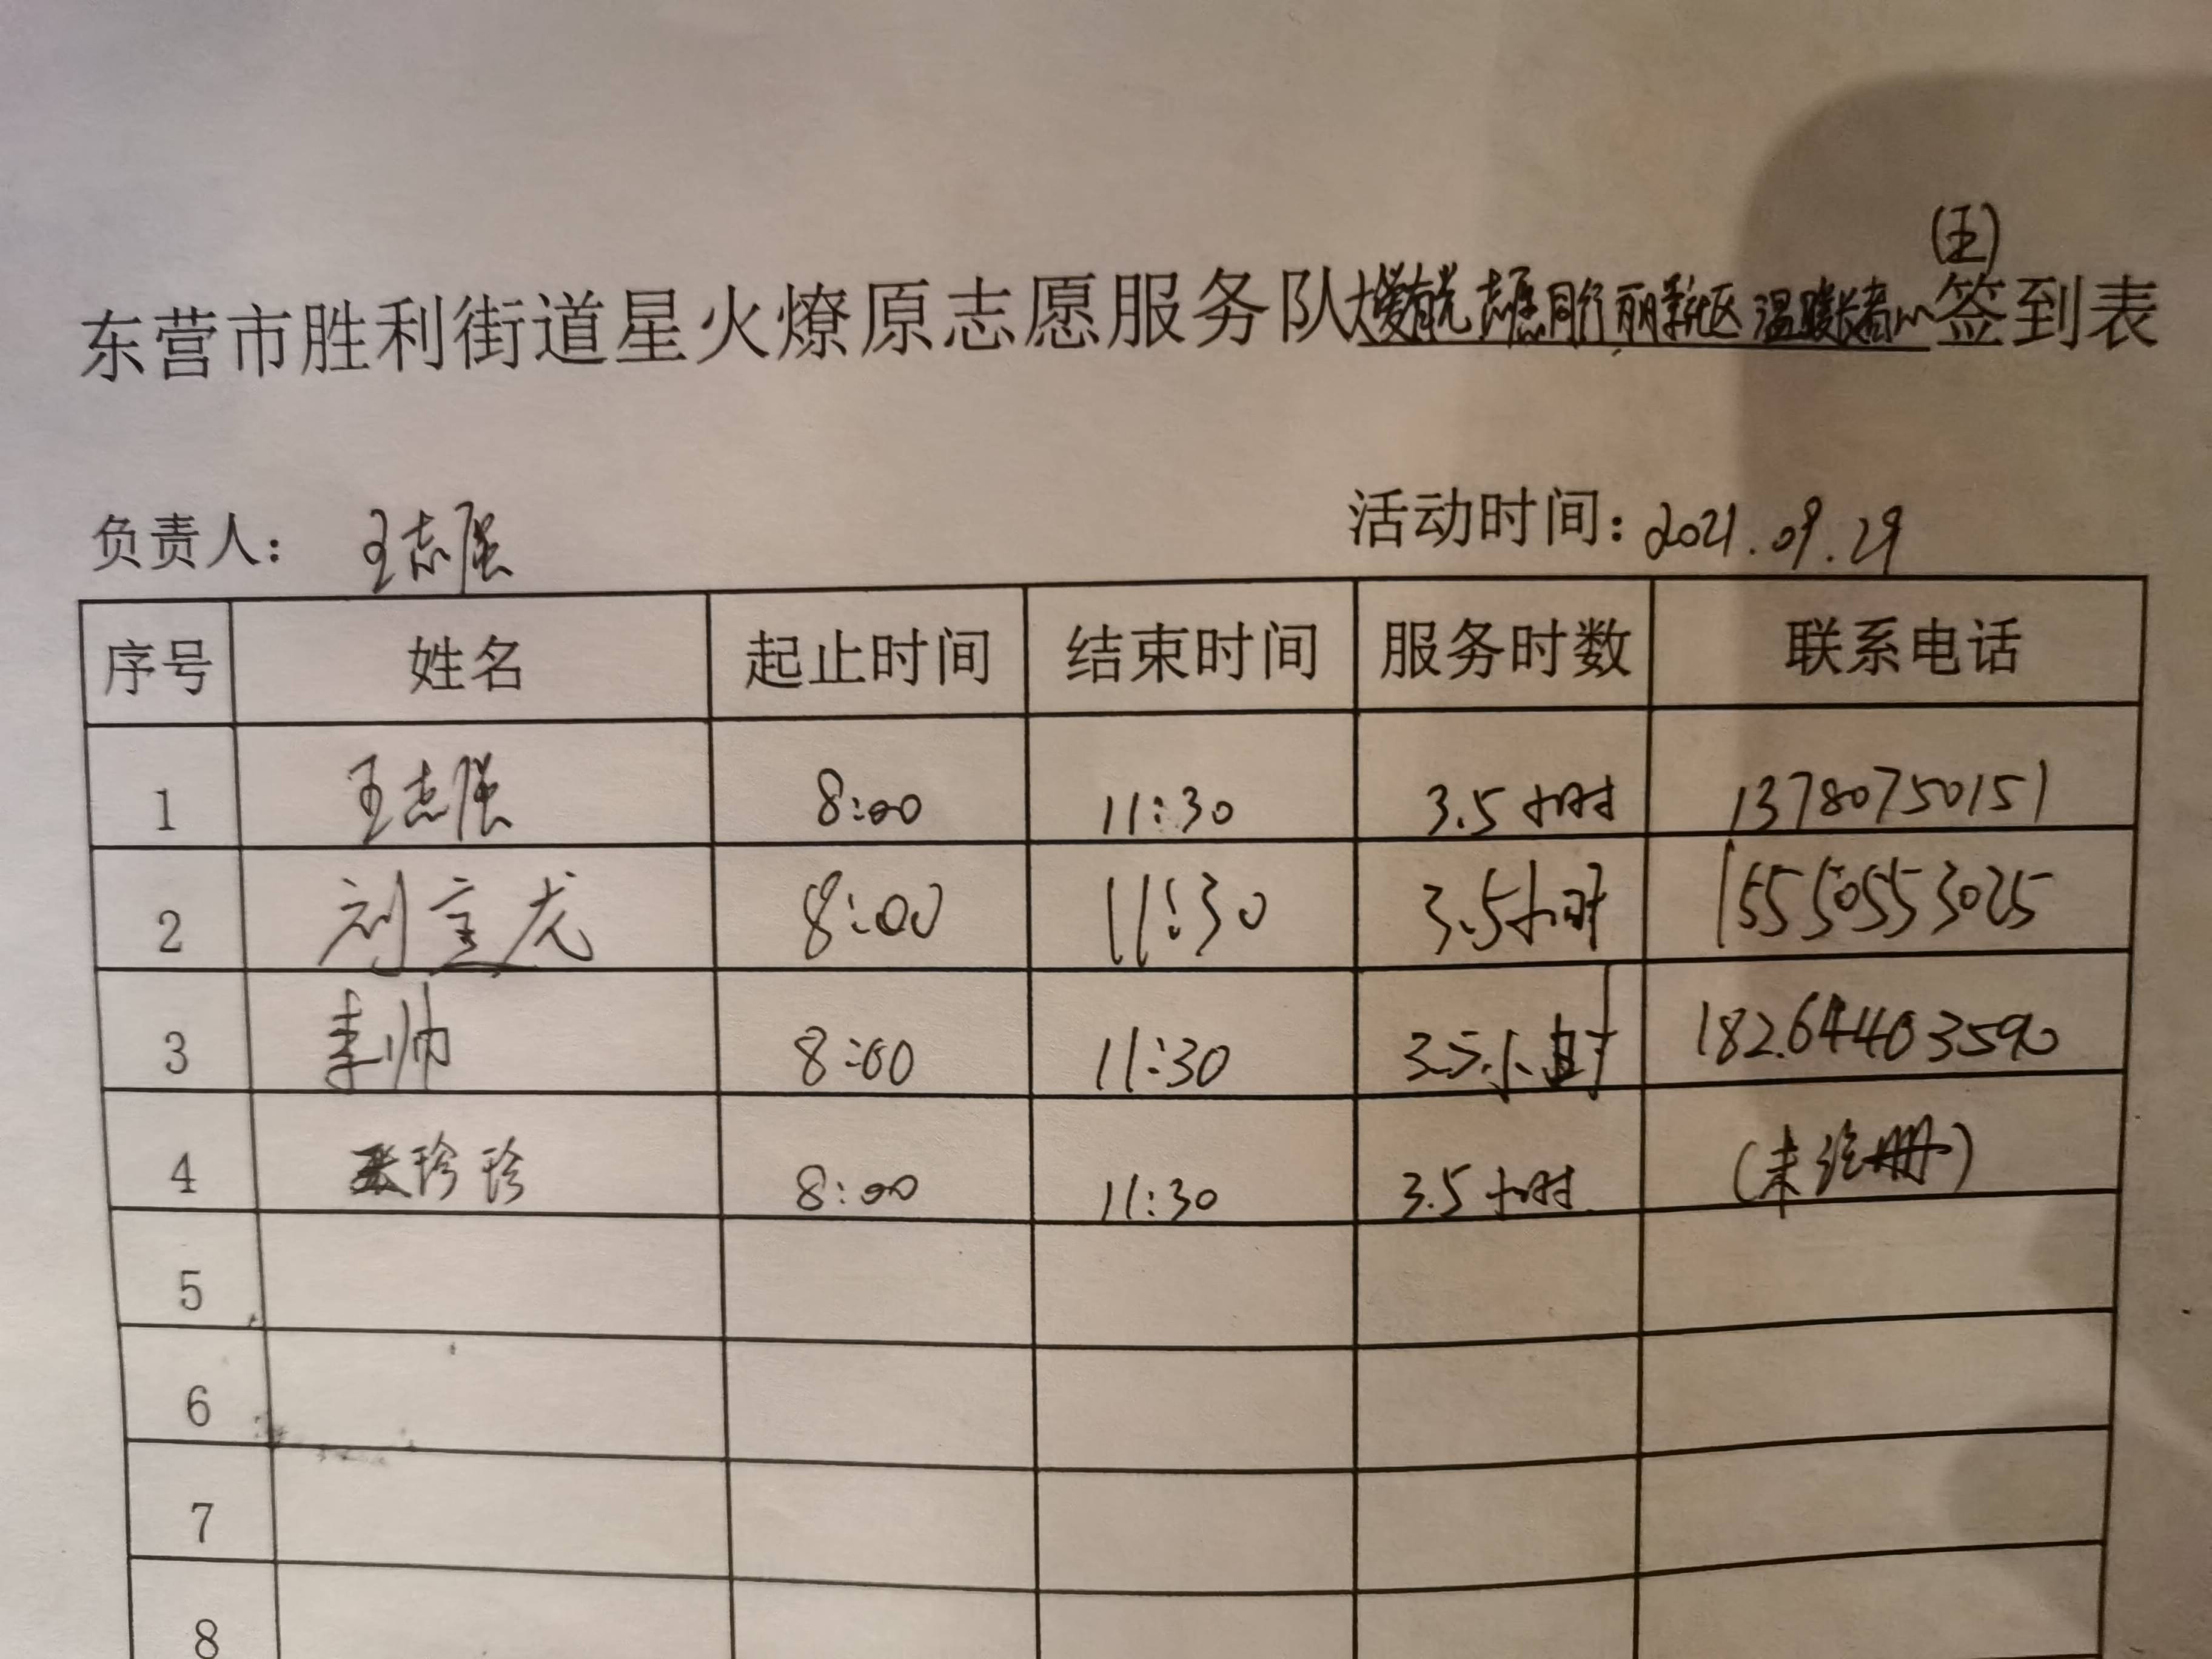 (王)
东营市胜利街道星火燎原志愿服务队大爱有光 志愿同行 丽景社区 温暖长者心签到表
负责人： 王志强 活动时间：2021.09.29
序号 姓名 起止时间 结束时间 服务时数 联系电话
1 王志强 8:00 11:30 3.5小时 13780750151
2 刘宝龙 8:00 11:30 3.5小时 15550553025
3 李帅 8:00 11:30 3.5小时 18264403590
4 张珍珍 8:00 11:30 3.5小时 (未注册)
5
6
7
8